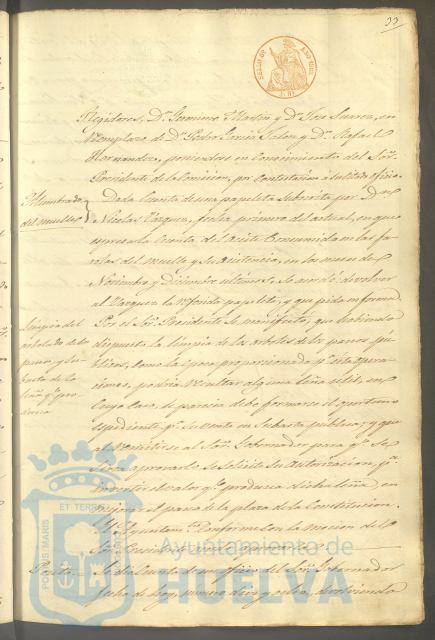 33
SELLO 4º AÑO 1861
Regidores, Dn. Geronimo Martin y Dn. José Suarez, en
reemplazo de Dn. Pedro Garcia y Dn. Rafael
Hernandez, poniendose en conocimiento del Sor.
Presidente de la Comision, por contestacion á su citado oficio.
Alumbrado
del muelle
Dada cuenta de una papeleta suscrita por Dn.
Nicolas Vazquez, fecha primero del actual, en que
expresa la cuenta del aceite consumido en las fa-
rolas del muelle y su asistencia, en los meses de
Noviembre y Diciembre ultimos, se acordó devolver
al Vazquez la referida papeleta, y que pida en forma.
Limpia del
arbolado de los
paseos y su-
basta de la
leña qe. pro-
duzca
Por el Sor. Presidente se manifestó, que habiendo
dispuesto la limpia de los arboles de los paseos pú-
blicos, como la época proporcionada pa. esta opera-
ciones, podria resultar alguna leña util, en
cuyo caso, le parecia debe formarse el oportuno
expediente pa. su venta en subasta pública; y que
al remitirse al Sor. Gobernador para qe. se
sirva aprobarlo se solicite su autorizacion, pa.
invertir el valor qe. produzca dicha leña, en
mejorar el paseo de la plaza de la Constitucion.
Y el Ayuntamto. conforme con la mocion del
Sor.
Se dió cuenta de un oficio del Sor. Gobernador
fecha de hoy, numero diez y ocho, devolviendo
PORTUS MARIS ET TERRÆ CUSTODIA
Ayuntamiento de
HUELVA